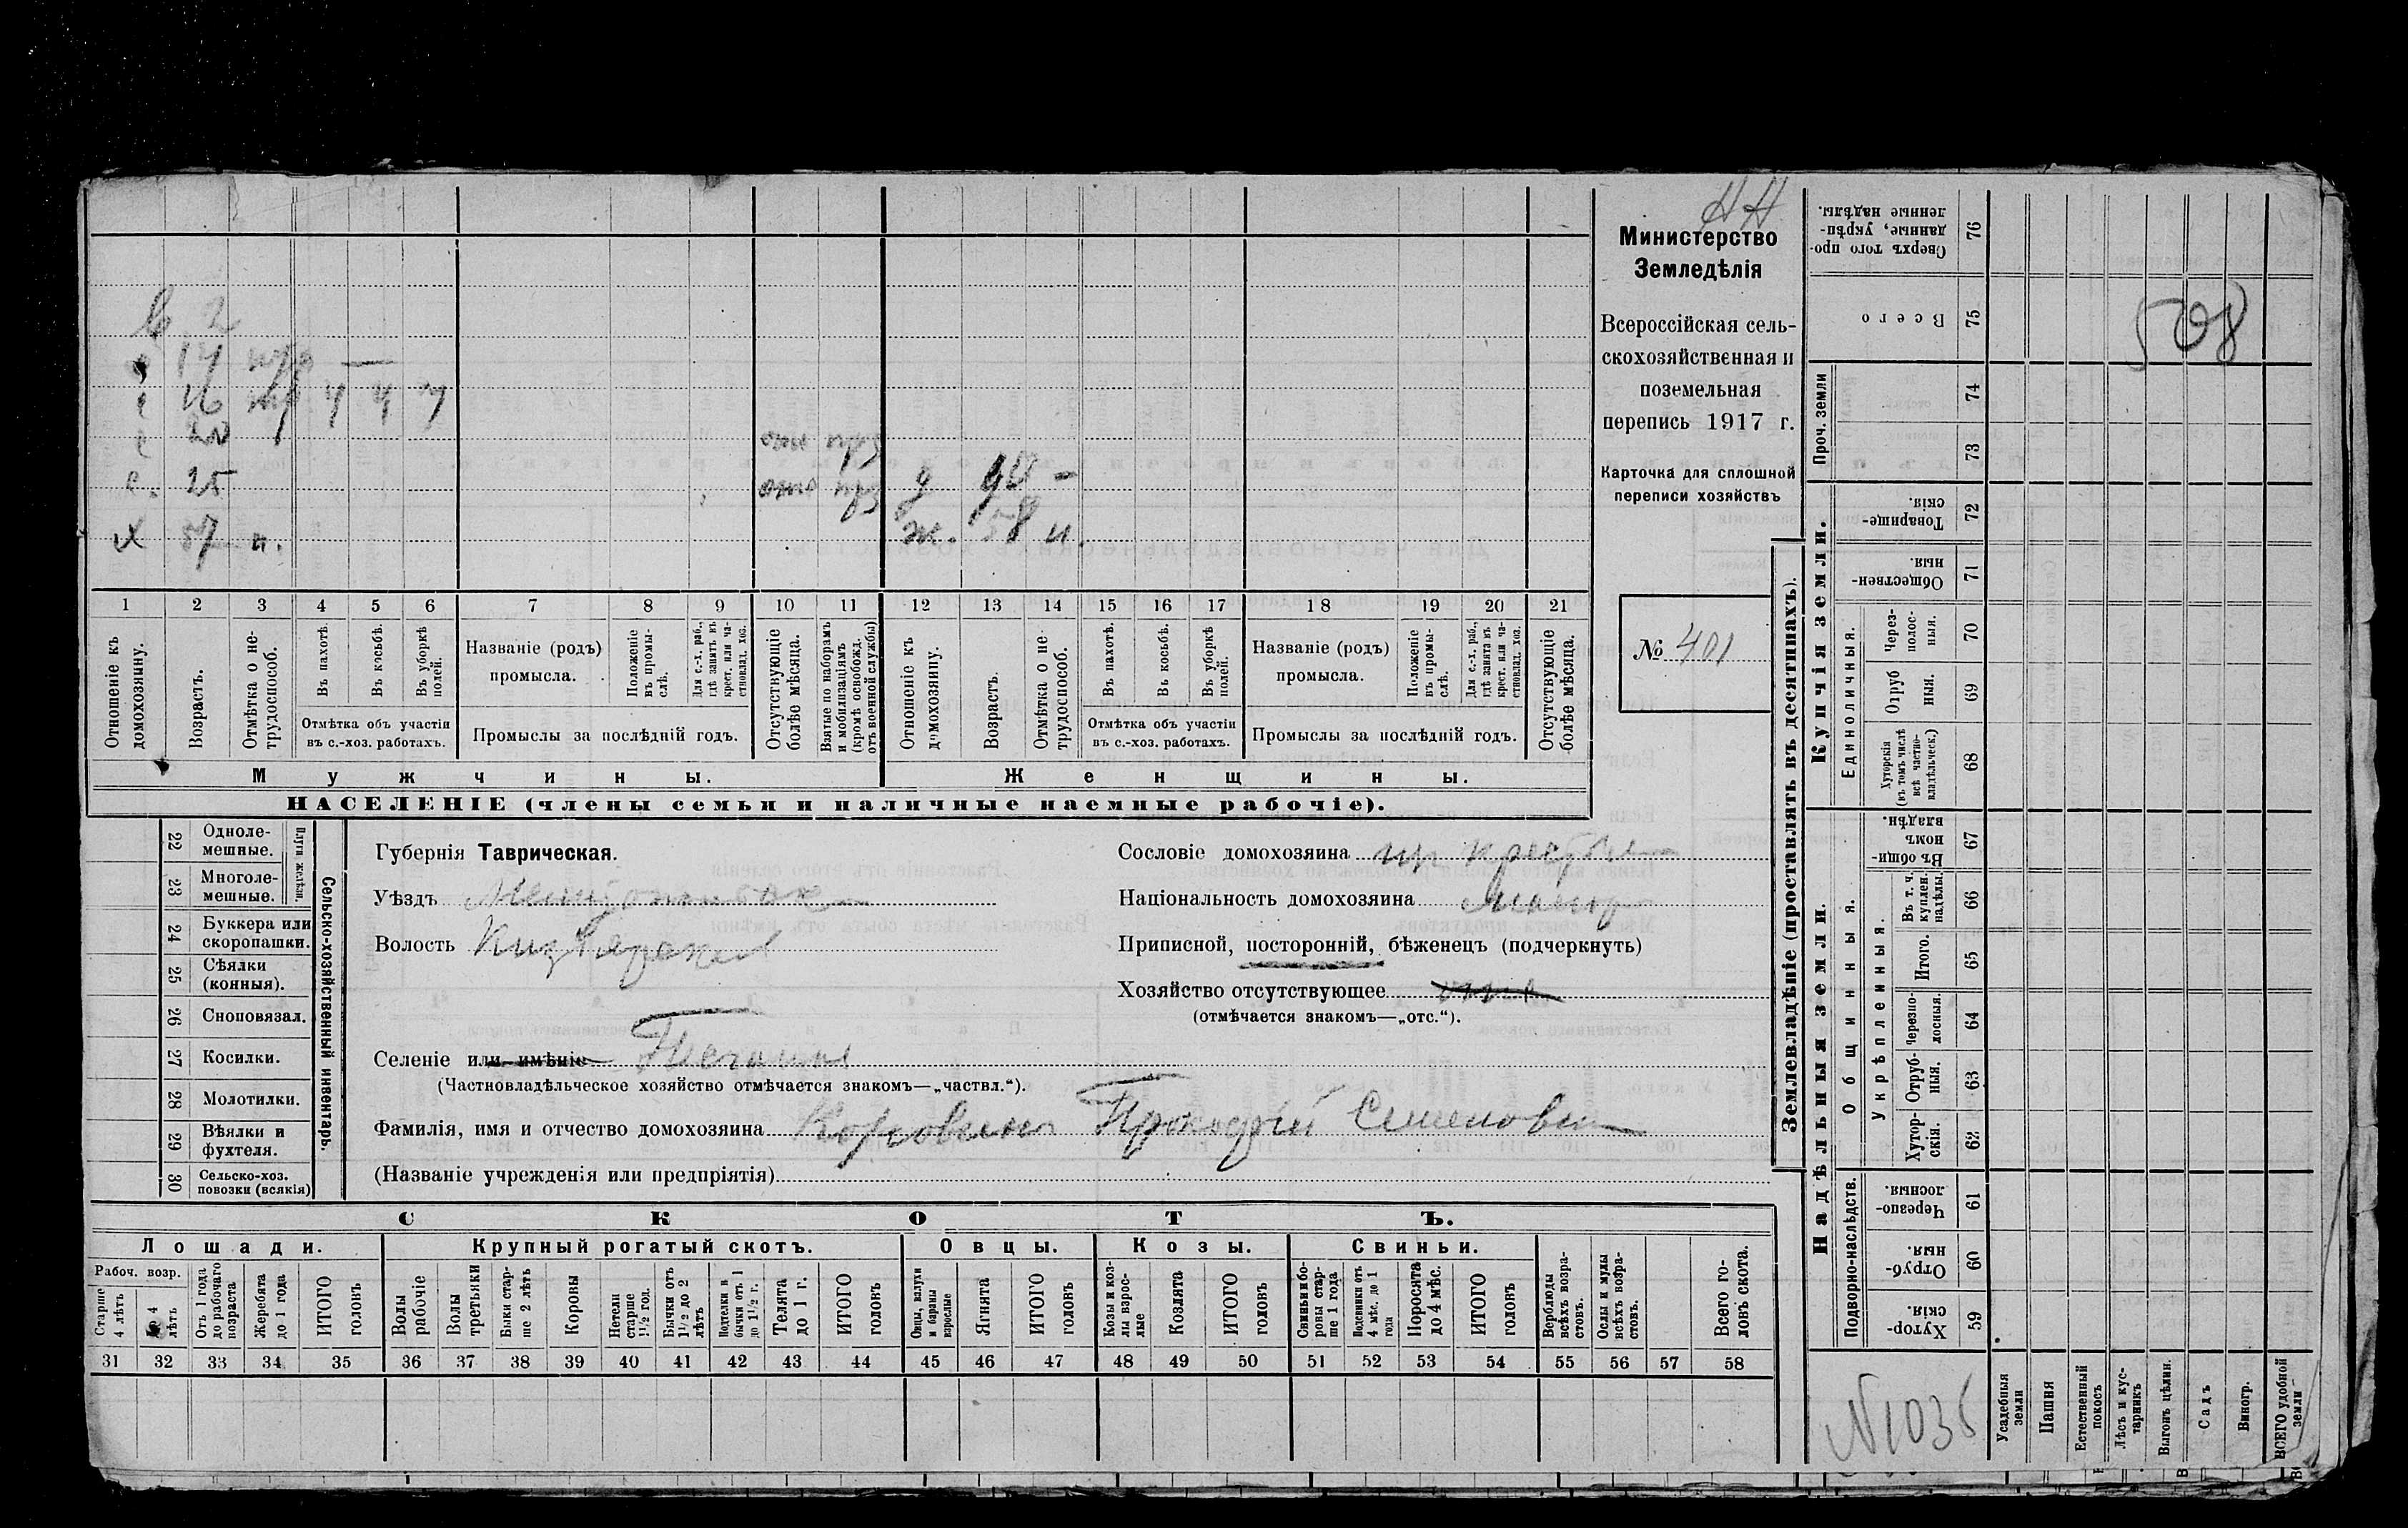 НН
Министерство
Земледѣлія
Всероссійская сель-
скохозяйственная и
поземельная
перепись 1917 г.
Карточка для сплошной
переписи хозяйствъ
№ 401
508
с 2
с 14 нтр —
с 16 нтр ч ч ч
с 20 отс прз
с. 25 отс прз д 90 -
х 57 н. ж. 58 н.
1 2 3 4 5 6 7 8 9 10 11 12 13 14 15 16 17 18 19 20 21
Отношеніе къ домохозяину.
Возрастъ.
Отмѣтка о не-трудоспособ.
Въ пахотѣ.
Въ косьбѣ.
Въ уборкѣ полей.
Отмѣтка объ участіи
въ с.-хоз. работахъ.
Названіе (родъ)
промысла.
Положеніе въ промы-слѣ.
Для с.-х. раб., гдѣ занятъ въ крест. или ча-стновлад. хоз.
Промыслы за послѣдній годъ.
Отсутствующіе болѣе мѣсяца.
Взятые по наборамъ и мобилизаціямъ (кромѣ освобожд. отъ военной службы)
Отношеніе къ домохозяину.
Возрастъ.
Отмѣтка о не-трудоспособ.
Въ пахотѣ.
Въ косьбѣ.
Въ уборкѣ полей.
Отмѣтка объ участіи
въ с.-хоз. работахъ.
Названіе (родъ)
промысла.
Положеніе въ промы-слѣ.
Для с.-х. раб., гдѣ занята въ крест. или ча-стновлад. хоз.
Промыслы за послѣдній годъ.
Отсутствующіе болѣе мѣсяца.
Мужчины.
Женщины.
НАСЕЛЕНІЕ (члены семьи и наличные наемные рабочіе).
22 Одноле-мешные.
23 Многоле-мешные.
Плуги желѣзн.
24 Буккера или скоропашки.
25 Сѣялки (конныя).
26 Сноповязал.
27 Косилки.
28 Молотилки.
29 Вѣялки и фухтеля.
30 Сельско-хоз. повозки (всякія)
Сельско-хозяйственный инвентарь.
Губернія Таврическая.
Уѣздъ
Волость
Селеніе или имѣніе
(Частновладѣльческое хозяйство отмѣчается знакомъ—„частвл.“).
Фамилія, имя и отчество домохозяина Прокофій Семенович
(Названіе учрежденія или предпріятія)
Сословіе домохозяина
Національность домохозяина
Приписной, посторонній, бѣженецъ (подчеркнуть)
Хозяйство отсутствующее
(отмѣчается знакомъ—„отс.“).
СКОТЪ.
Лошади.
Рабоч. возр.
Старше 4 лѣтъ
До 4 лѣтъ
Отъ 1 года до рабочаго возраста
Жеребята до 1 года
ИТОГО головъ
Крупный рогатый скотъ.
Волы рабочіе
Волы третьяки
Быки стар-ше 2 лѣтъ
Коровы
Нетели старше 1½ год.
Бычки отъ 1½ до 2 лѣтъ
Подтелки и бычки отъ 1 до 1½ г.
Телята до 1 г.
ИТОГО головъ
Овцы.
Овцы, валухи и бараны взрослые
Ягнята
ИТОГО головъ
Козы.
Козы и коз-лы взрос-лые
Козлята
ИТОГО головъ
Свиньи.
Свиньи и бо-ровы стар-ше 1 года
Подсвинки отъ 4 мѣс. до 1 года
Поросята до 4 мѣс.
ИТОГО головъ
Верблюды всѣхъ возра-стовъ.
Ослы и мулы всѣхъ возра-стовъ.
Всего го-ловъ скота.
31 32 33 34 35 36 37 38 39 40 41 42 43 44 45 46 47 48 49 50 51 52 53 54 55 56 57 58
Землевладѣніе (проставлять въ десятинахъ).
Сверхъ того про-данные, укрѣп-ленные надѣлы. 76
Всего 75
Проч. земли
74
73
Купчія земли.
Товарище-скія. 72
Обществен-ныя 71
Единоличныя.
Через-полос-ныя. 70
Отруб ныя. 69
Хуторскія (въ томъ числѣ всѣ частно-владѣльческ.) 68
Надѣльныя земли.
Общинныя.
Въ общин-номъ владѣн. 67
Укрѣпленныя.
Въ т. ч. куплен. надѣлы. 66
Итого. 65
Черезпо-лосныя. 64
Отруб-ныя. 63
Хутор-скія. 62
Подворно-наслѣдств.
Черезпо-лосныя. 61
Отруб-ныя. 60
Хутор-скія. 59
N1036
Усадебныя земли
Пашня
Естественный покосъ
Лѣсъ и кус-тарникъ
Выгонъ цѣлин.
Садъ
Виногр.
ВСЕГО удобной земли